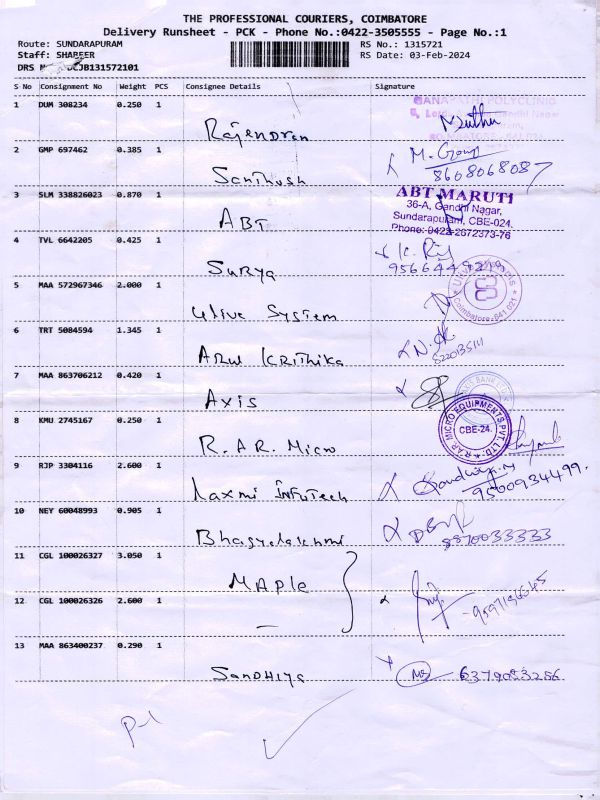 THE PROFESSIONAL COURIERS, COIMBATORE
Delivery Runsheet - PCK - Phone No.:0422-3505555 - Page No.:1
Route: SUNDARAPURAM
RS No.: 1315721
Staff: SHABEER
RS Date: 03-Feb-2024
DRS JB131572101
S No Consignment No Weight PCS Consignee Details Signature
1 DUM 308234 0.250 1
GANAPATHI POLYCLINIC
Gandhi Nagar
Rajendran Muthu
2 GMP 697462 0.385 1
Santhosh 8608068087
3 SLM 338826023 0.870 1
ABT MARUTI
36-A, Gandhi Nagar,
Sundarapuram, CBE-024.
Phone: 0422-2672373-76
ABT
4 TVL 6642205 0.425 1
Surya
5 MAA 572967346 2.000 1
Ulive System
Coimbatore-641 021
6 TRT 5084594 1.345 1
Arul Krithika
7 MAA 863706212 0.420 1
Axis
8 KMU 2745167 0.250 1
R.A.R. MICRO EQUIPMENTS PVT. LTD.
CBE-24.
R.A.R. Micro
9 RJP 3304116 2.600 1
Laxmi Infotech 9500934499.
10 NEY 60048993 0.905 1
Bhagyalakshmi 8870033333
11 CGL 100026327 3.050 1
MAPle
12 CGL 100026326 2.600 1
13 MAA 863400237 0.290 1
Sandhiya 6379053286
P-1